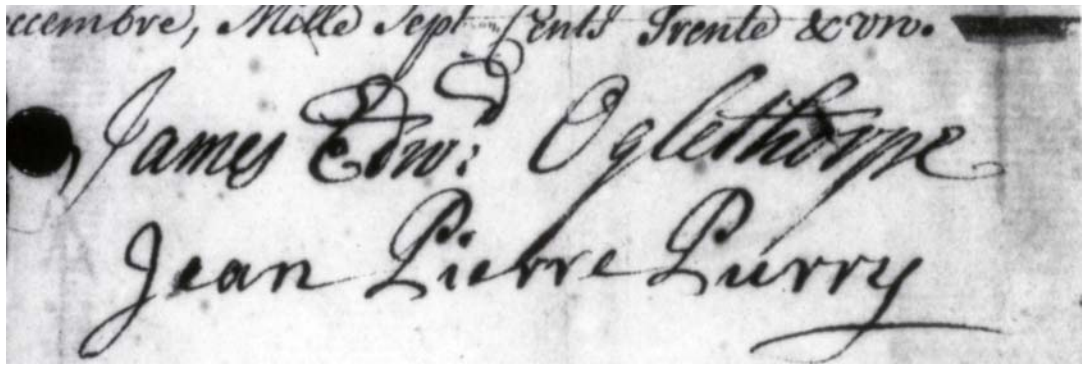 ecembre, Mille Sept Cents Trente & un.
James Edwd: Oglethorpe
Jean Pierre Purry